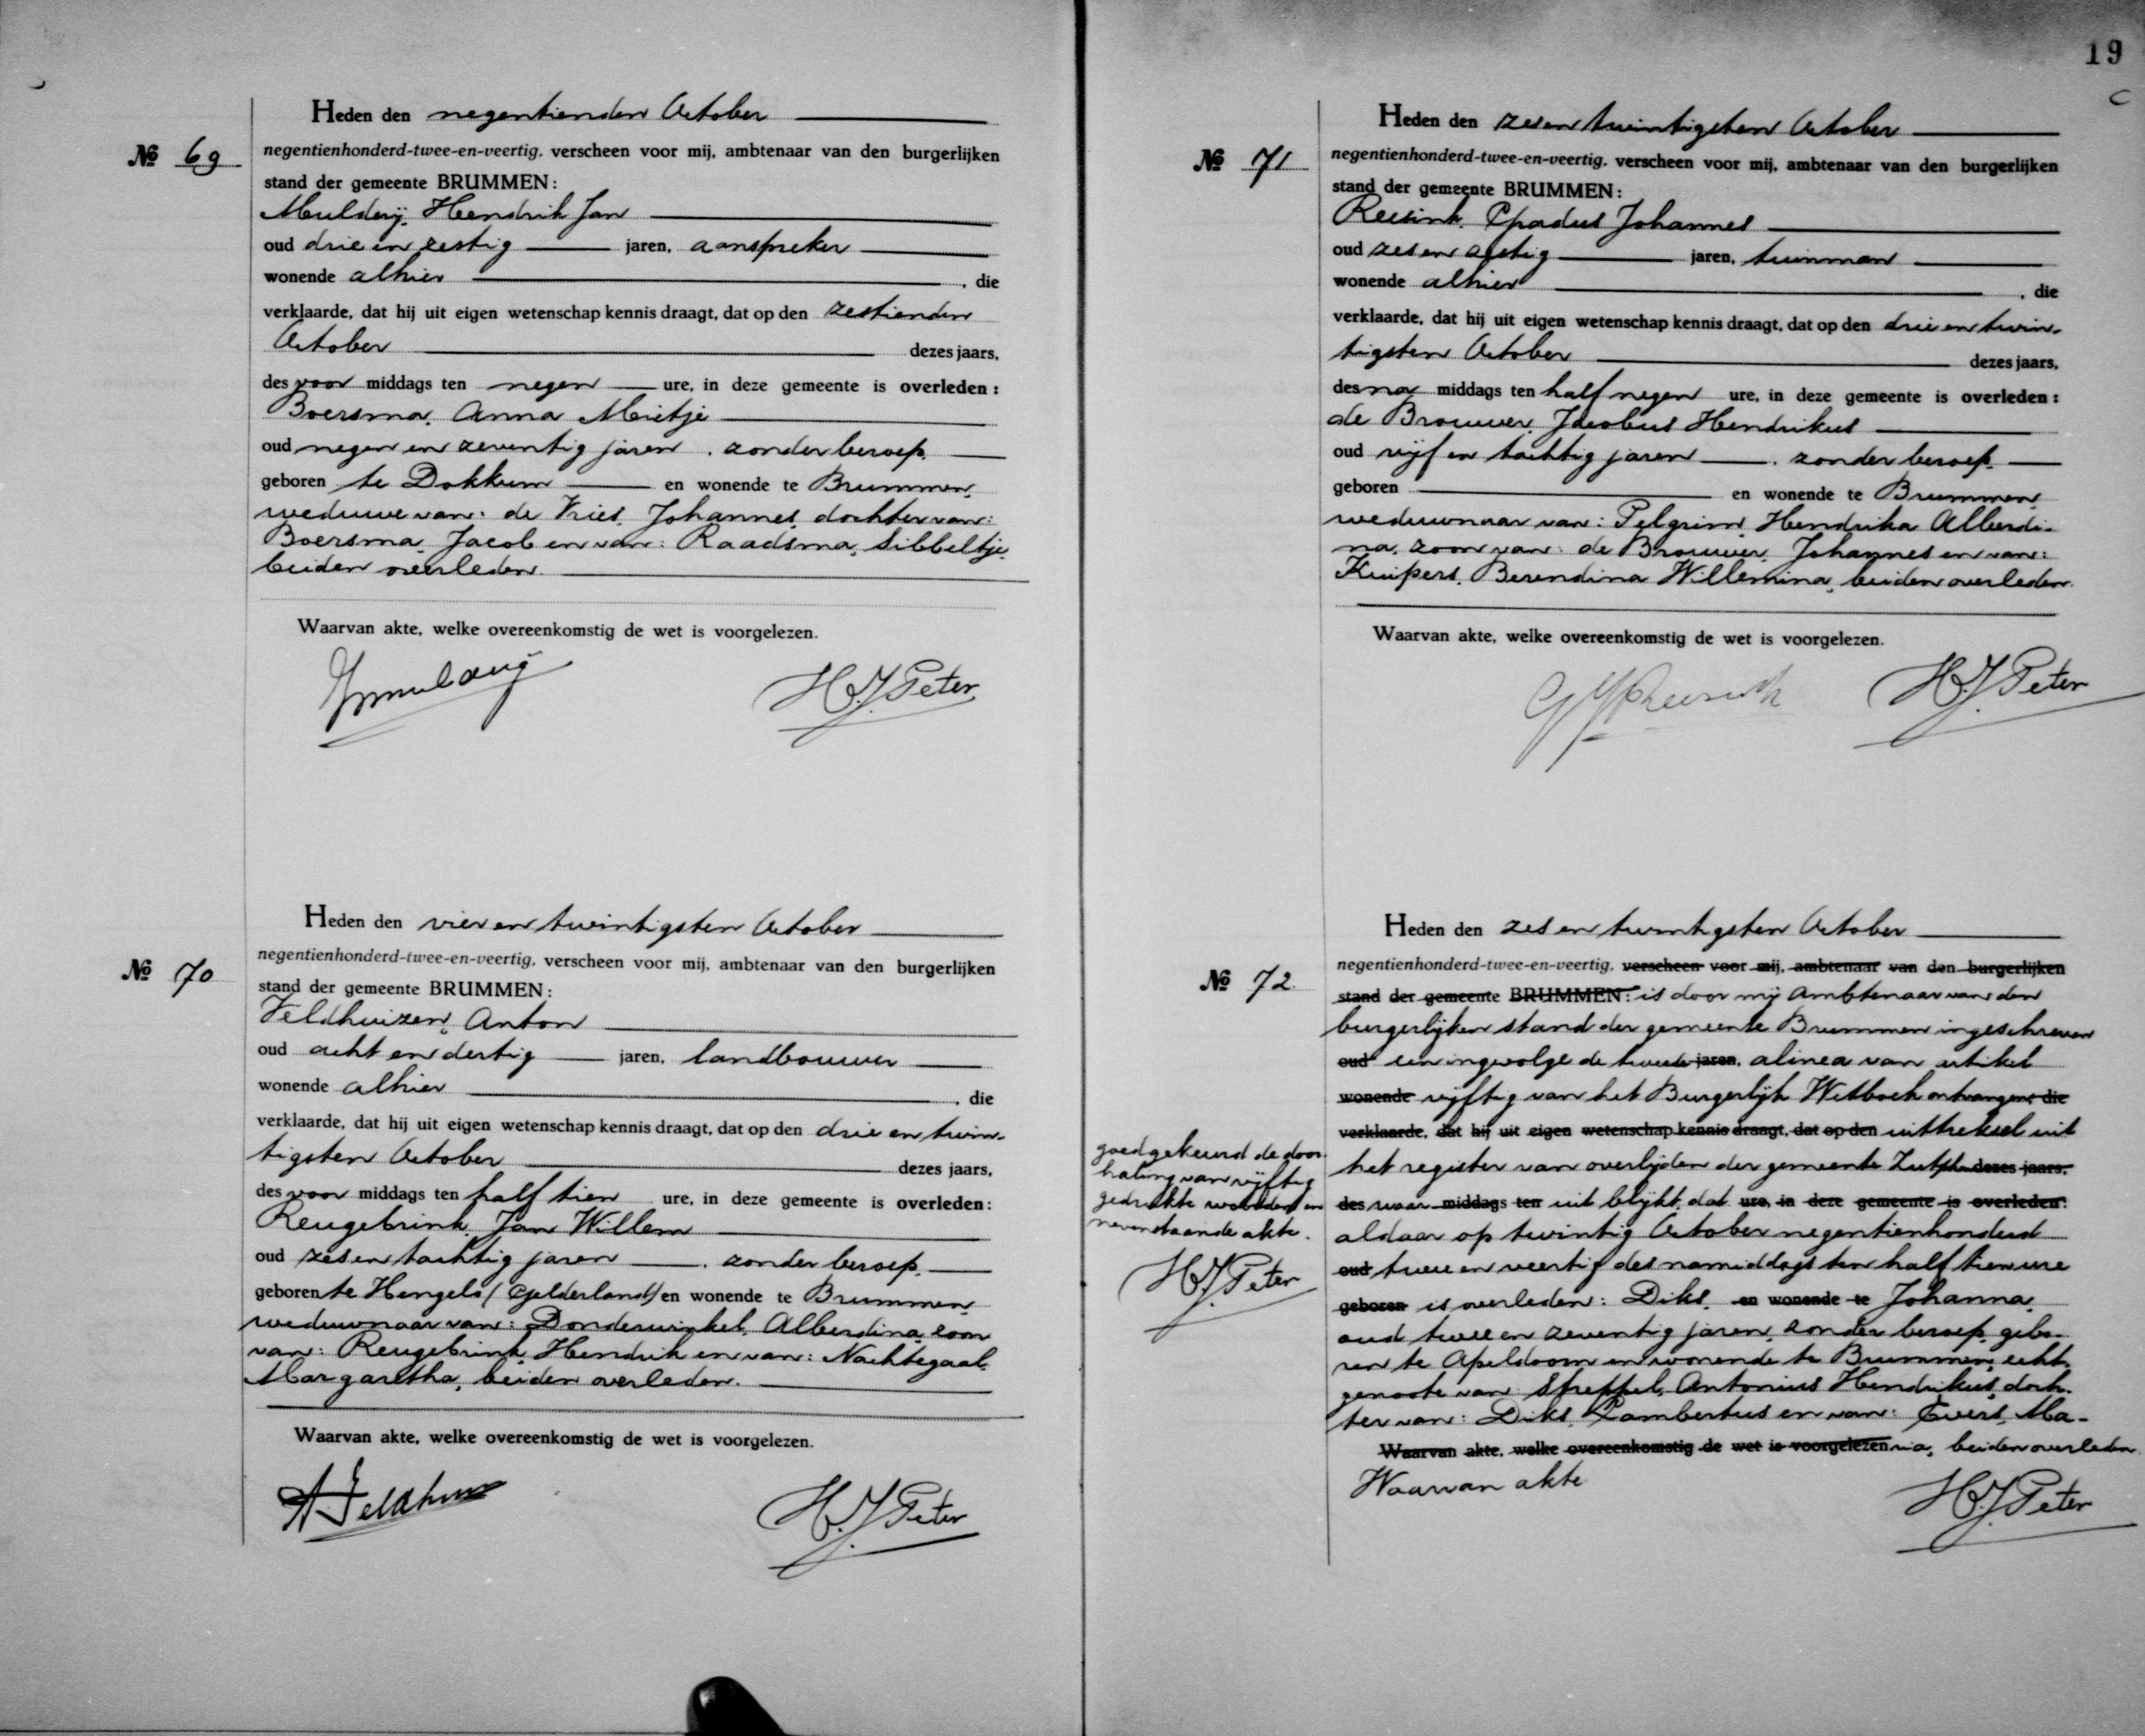 19
Heden den negentienden October
№ 69
negentienhonderd-twee-en-veertig, verscheen voor mij, ambtenaar van den burgerlijken
stand der gemeente BRUMMEN:
Mulderij, Hendrik Jan
oud drie en zestig jaren, aanspreker
wonende alhier , die
verklaarde, dat hij uit eigen wetenschap kennis draagt, dat op den zestienden
October dezes jaars,
des voor middags ten negen ure, in deze gemeente is overleden:
Boersma, Anna Mietje
oud negen en zeventig jaren, zonder beroep,
geboren te Dokkum en wonende te Brummen,
weduwe van: de Vries, Johannes, dochter van:
Boersma, Jacob en van: Raadsma, Sibbeltje,
beiden overleden.
Waarvan akte, welke overeenkomstig de wet is voorgelezen.
H.J. Peter
Heden den vier en twintigsten October
№ 70
negentienhonderd-twee-en-veertig, verscheen voor mij, ambtenaar van den burgerlijken
stand der gemeente BRUMMEN:
Veldhuizen, Anton
oud acht en dertig jaren, landbouwer
wonende alhier , die
verklaarde, dat hij uit eigen wetenschap kennis draagt, dat op den drie en twin-
tigsten October dezes jaars,
des voor middags ten half tien ure, in deze gemeente is overleden:
Reugebrink, Jan Willem
oud zes en tachtig jaren, zonder beroep,
geboren te Hengelo (Gelderland) en wonende te Brummen,
weduwnaar van: Donderwinkel, Alberdina, zoon
van: Reugebrink, Hendrik en van: Nachtegaal,
Margaretha, beiden overleden.
Waarvan akte, welke overeenkomstig de wet is voorgelezen.
H.J. Peter
Heden den zes en twintigsten October
№ 71
negentienhonderd-twee-en-veertig, verscheen voor mij, ambtenaar van den burgerlijken
stand der gemeente BRUMMEN:
Reesink, Johannes
oud zes en jaren, tuinman
wonende alhier , die
verklaarde, dat hij uit eigen wetenschap kennis draagt, dat op den drie en twin-
tigsten October dezes jaars,
des na middags ten half negen ure, in deze gemeente is overleden:
de Brouwer, Jacobus Hendrikus
oud vijf en tachtig jaren, zonder beroep,
geboren en wonende te Brummen,
weduwnaar van: Pelgrim, Hendrika Alberdi-
na, zoon van: de Brouwer, Johannes en van:
Kuipers, Berendina Willemina, beiden overleden.
Waarvan akte, welke overeenkomstig de wet is voorgelezen.
H.J. Peter
Heden den zes en twintigsten October
№ 72
negentienhonderd-twee-en-veertig, verscheen voor mij, ambtenaar van den burgerlijken
stand der gemeente BRUMMEN: is door mij Ambtenaar van den
burgerlijken stand der gemeente Brummen ingeschreven
oud een ingevolge de tweede jaren, alinea van artikel
wonende vijftig van het Burgerlijk Wetboek ontvangen, die
verklaarde, dat hij uit eigen wetenschap kennis draagt, dat op den uittreksel uit
het register van overlijden der gemeente Zutphen dezes jaars,
des waar middags ten uit blijkt, dat ure, in deze gemeente is overleden:
aldaar op twintig October negentienhonderd
oud twee en veertig des namiddags ten half tien ure
geboren is overleden: Diks, en wonende te Johanna,
oud twee en zeventig jaren, zonder beroep, gebo-
ren te Apeldoorn en wonende te Brummen, echt-
genoote van Streppel, Antonius Hendrikus, doch-
ter van: Diks, Lambertus en van: Evers, Ma-
Waarvan akte, welke overeenkomstig de wet is voorgelezen ria, beiden overleden
Waarvan akte
H.J. Peter
goedgekeurd de door-
haling van vijftig
gedrukte woorden in
nevenstaande akte.
H.J. Peter